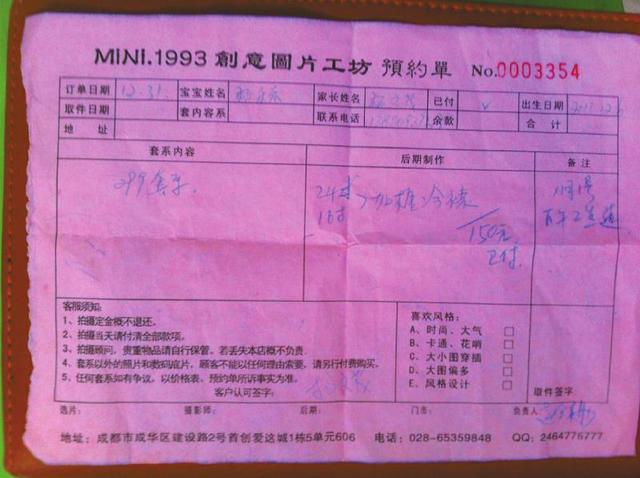 MiNi.1993 創意圖片工坊 預約單 No.0003354
订单日期 12.31. 宝宝姓名 家长姓名 已付 √ 出生日期
取件日期 套内容系 联系电话 余款 合计
地址
套系内容 后期制作 备注
299套系.
24寸
16寸
150元
已付
客服须知:
1、拍摄定金概不退还。
2、拍摄当天请付清全部款项。
3、拍摄顾问,贵重物品请自行保管。若丢失本店概不负责.
4、套系以外的照片和数码底片,顾客不能以任何理由索要,请另行付费购买。
5、任何套系如有争议,以价格表、预约单所诉事实为准。
客户认可签字:
喜欢风格:
A、时尚、大气 □
B、卡通、花哨 □
C、大小图穿插 □
D、大图偏多 □
E、风格设计 □
取件签字:
选片: 摄影师: 后期: 门市: 负责人
地址:成都市成华区建设路2号首创爱这城1栋5单元606 电话:028-65359848 QQ:2464776777